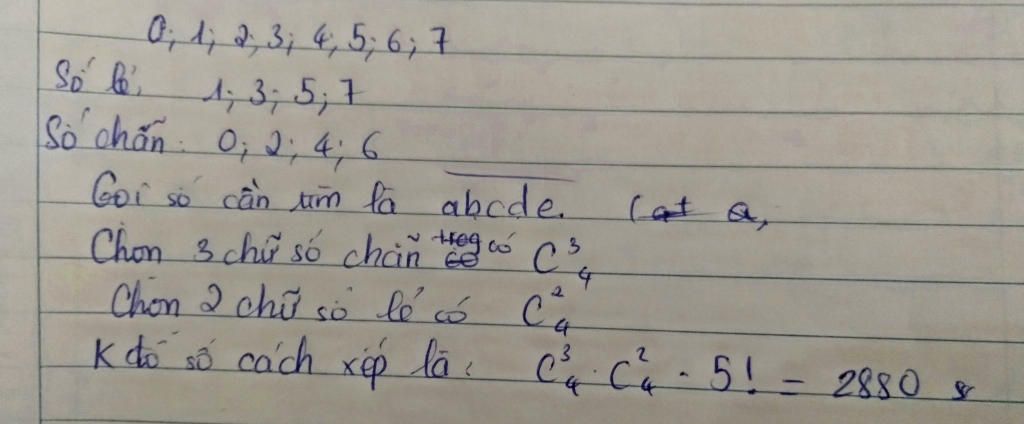 0; 1; 2; 3; 4; 5; 6; 7
Số lẻ: 1; 3; 5; 7
Số chẵn: 0; 2; 4; 6
Gọi số cần tìm là abcde. (a,
Chọn 3 chữ số chẵn có C³₄
Chọn 2 chữ số lẻ có C²₄
K đó số cách xếp là: C³₄ . C²₄ . 5! = 2880 s